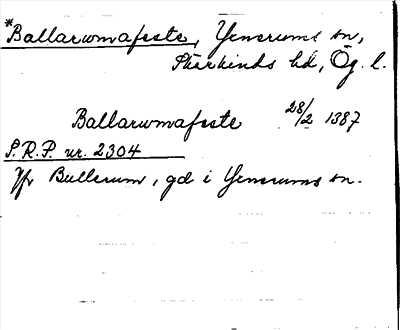 *Ballarumafæste, Yensrums sn,
Skärkinds hd, Ög. l.
Ballarumafæste 28/2 1387
S.R.P. nr. 2304
Jfr Bullerum, gd i Yensrums sn.